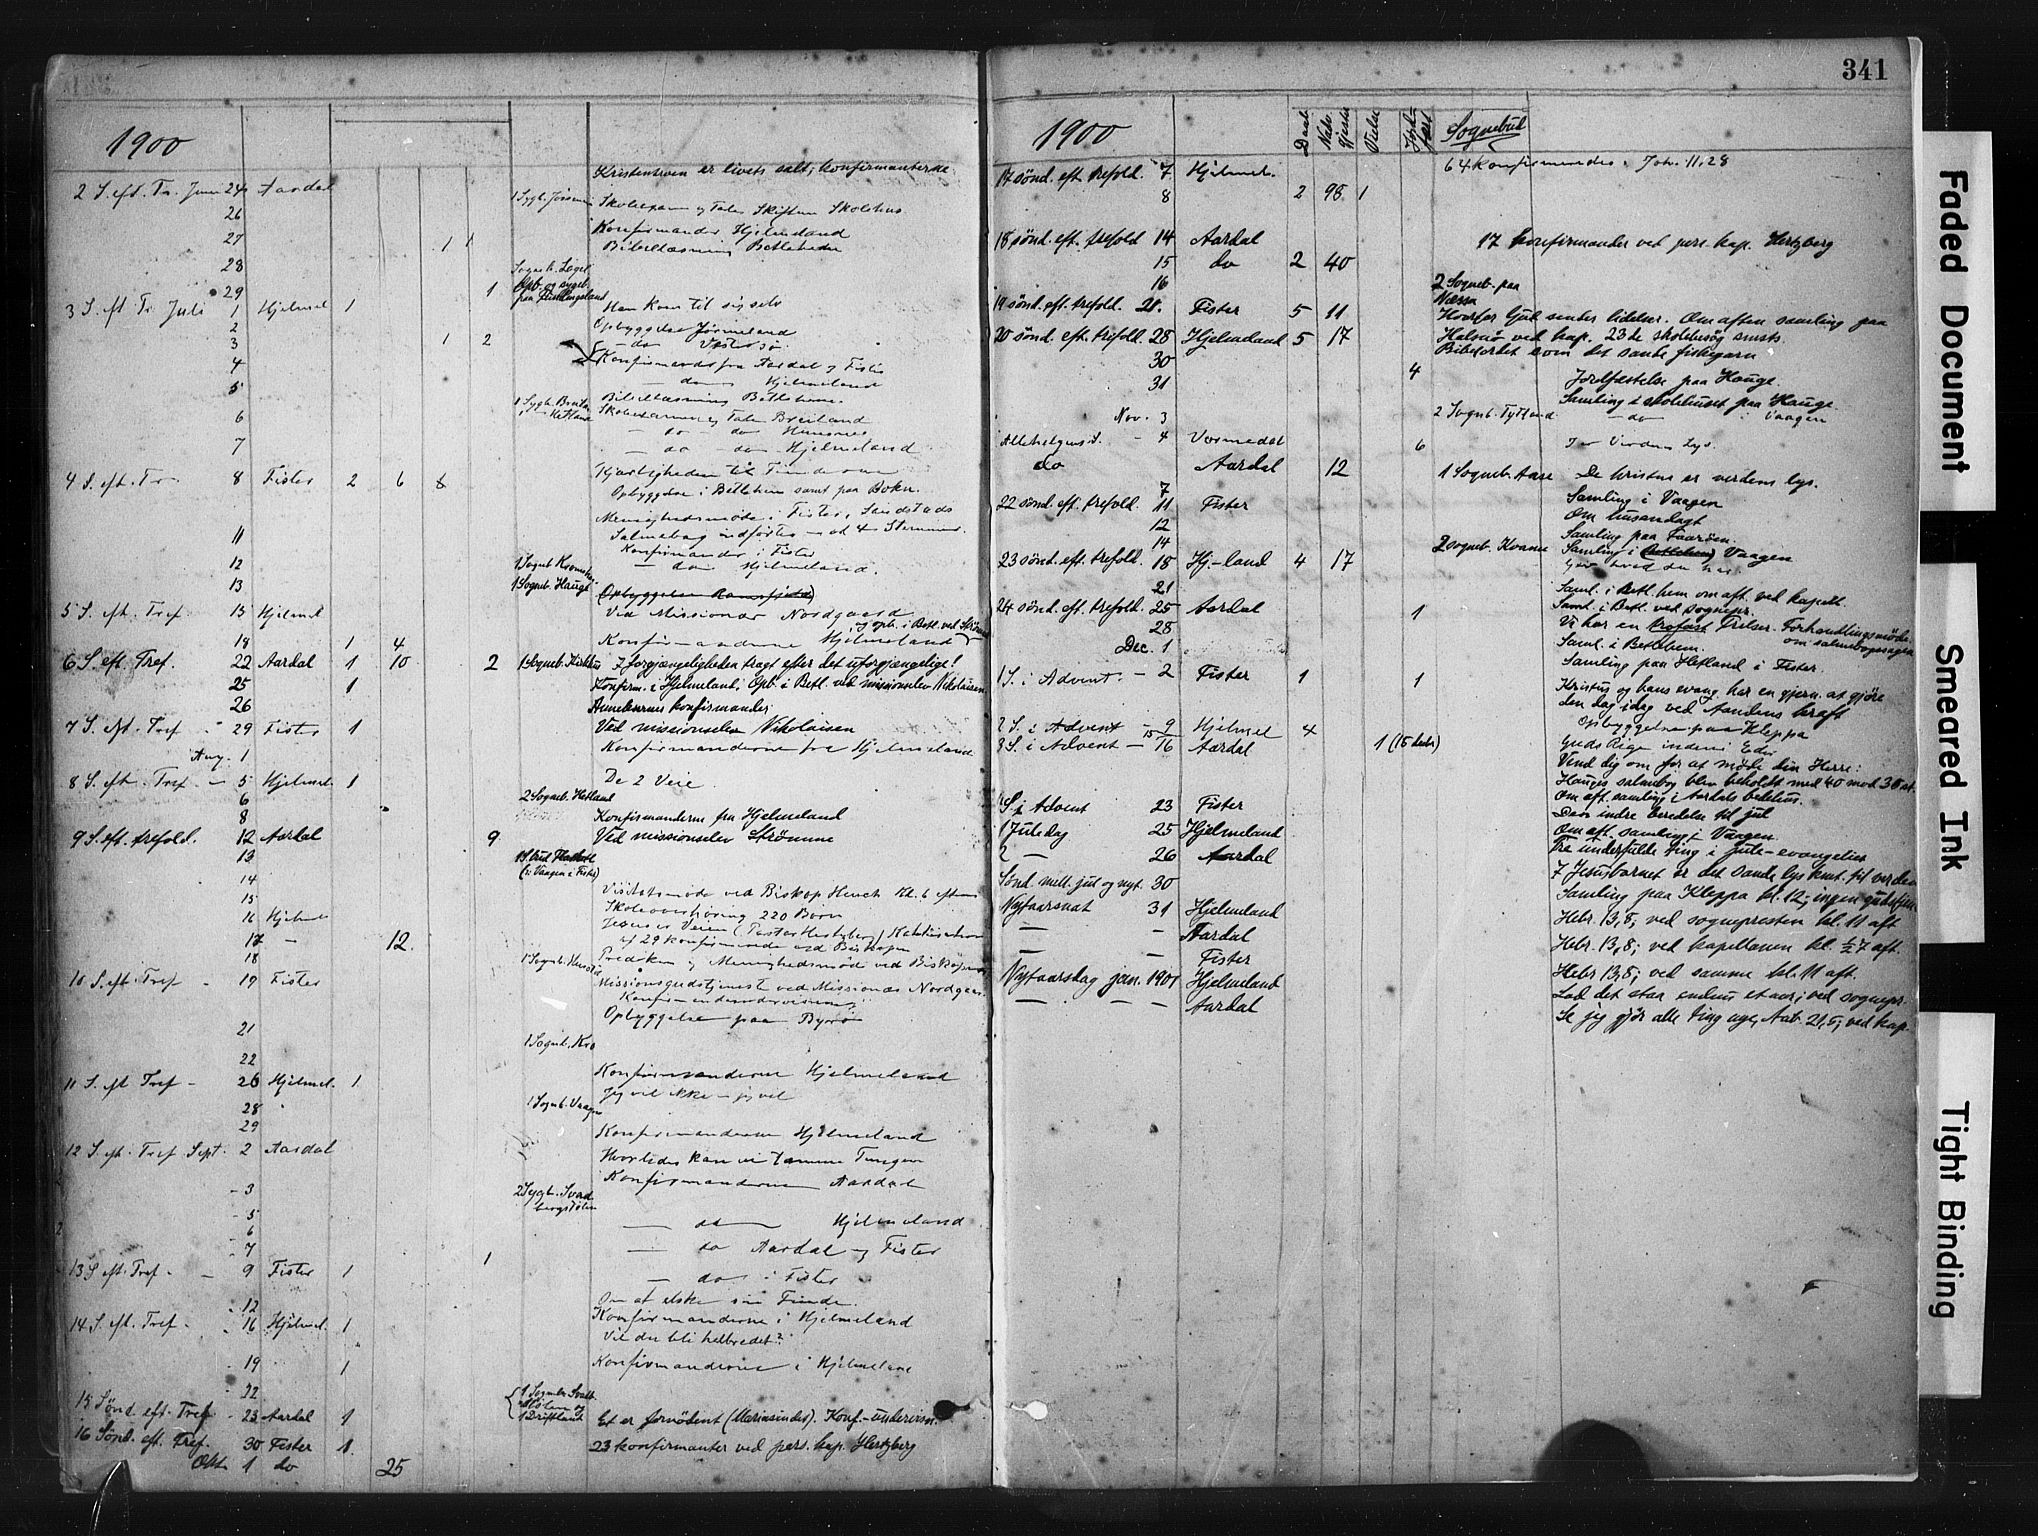 341
1900
2 S. eft. Tr. Juni 24 Aardal Kristenheven er livets salt, konfirmanterne
26 1 Sygb.
27 1 1 Konfirmander Hjelmeland
Bibellæsning Betlehem
28
29 1
3 S. eft Tr. Juli 1 Hjelmel 1 Han kom til sig selv
2 Opbyggelse Jørmeland
3 1 2 — do
4 Konfirmander fra Aardal og Fister
— do — Hjelmeland
5 Bibellæsning Betlehem
6 Breiland
— do — do
7 — do — do Hjelmeland
4 S. eft. Tr. 8 Fister 2 6 Kjærligheden til Fienderne
Opbyggelse i Betlehem samt paa Bokn.
Menighedsmøde i Fister, Landstads
11 Salmebog indførtes 4 Stemmer
Konfirmander i Fister
12 — do — Hjelmeland.
13 1 Sogneb. Hauge
5 S. eft. Tref 15 Hjelmel Ved Missionær Nordgaard
og opb. i Betl. ved
18 1 4 Konfirmanderne Hjelmeland
6 S. eft. Tref. 22 Aardal 1 10 2 1 Sogneb. I forgjængeligheden tragt efter det uforgjængelige!
25 1 Konfirm. i Hjelmeland; Opb. i Betl. ved missionselev Nikolaisen
26 Annekernes konfirmander
7 S. eft. Tref 29 Fister 1 Ved missionselev Nikolaisen
Aug. 1 Konfirmanderne fra Hjelmeland
8 S. eft. Tref — 5 Hjelmel 1 De 2 Veie
6 2 Sogneb. Hetland
8 Konfirmanderne fra Hjelmeland
9 S. eft. trefold. 12 Aardal 9 Ved missionselev Strømme
13
14
15 Visitatsmøde ved Biskop Heuch Kl. 6 eftm
16 Hjelml Skoleoverhøring 220 Børn
17 — 12. Jesus er Veien
18 af 29 konfirmerede ved Biskopen
10 S. eft. Tref 19 Fister Prædiken og Menighedsmød ved Biskopen
Missionsgudstjenest ved Missionær Nordgaar.
21 Opbyggelse paa Byrø
22 1 Sogneb. Kro
11 S. eft Tref — 26 Hjelmel. 1 Konfirmanderne Hjelmeland
28 Jeg vil ikke — jeg vil
29 1 Sogneb. Vaagen
12 S. eft. Tref Sept. 2 Aardal Konfirmanderne Hjelmeland
Hvorledes kan vi tæmme Tungen
- 3 Konfirmanderne Aardal
- 5 2 Sygb. Svad
bergstølen
6 — do — Hjelmeland
- 7 — do Aardal og Fister
13 S eft. Tref. — 9 Fister 1 1 — do i Fister
12 Om at elske sin Fiende.
14 S. eft. Tref — 16 Hjelmel. 1 Konfirmanderne i Hjelmeland
Vil du bli helbredet?
19 1 Konfirmanderne i Hjelmeland
22
15 Sønd eft. Tref — 23 Aardal 1 Et er fornødent (Mariasindet). Konf.-undervisn.
16 Sønd. eft. Tref. 30 Fister 1 23 konfirmanter ved pers. kap. Hertzberg
Okt 1 do 25
1900 Daab Nadv. gjeste Vielse Jord fæst Sognebud
17 sønd. eft trefold. 7 Hjelmel. 64 konfirmeredes. Joh. 11,28
8 2 98 1
18 sønd. eft. trefold 14 Aardal 17 konfirmander ved pers. kap. Hertzberg
15 do 2 40
16 2 Sogneb. paa
19 sønd. eft. trefold. 21. Fister 5 11 Hvorfor Gud sender lidelser. Om aften samling paa
20 sønd. eft. trefold. 28 Hjelmeland 5 17 Halsnø ved kap. 23de skolebesøg smsts.
30 Bibelordet som det sande fiskegarn
31 4 Jordfæstelse paa Hauge.
Samling i skolehuset paa Hauge
Nov. 3 2 Sogneb. Tytland — do — i Vaagen
Allehelgensd. - 4 Vormedal 6 I er Verdens Lys.
do Aardal 12 1 Sogneb. Aase De kristne er verdens lys.
7 Samling i Vaagen
22 sønd. eft. trefold. 11 Fister Om husandagt
12 Samling paa
14 2 sogneb. Kvame Samling i Vaagen
23 sønd. eft. trefold. 18 Hj-land 4 17
21 Saml. i Betl. hem om aft. ved kapell.
24 sønd. eft. trefold. 25 Aardal 1 Saml. i Betl. ved sognepr.
28 Vi har en Frelser. Forhandlingsmøde
om salmebogssagen
Dec. 1 Saml. i Betlehem.
Samling paa Hetland i Fister.
1 S. i Advent. — 2 Fister 1 1 Kristus og hans evang. har en gjern. at gjøre
den dag idag ved Aandens kraft
2 S. i Advent — 9 Hjelmel 4 Opbyggelse paa Kleppa
15
3 S. i Advent — 16 Aardal 1 (15 decbr) Guds Rige inden i Eder
Vend dig om for at møde din Herre:
Hauges salmebog blev beholdt med 40 mod 38 st.
Om aft. samling i Aardals bedehus.
4 S. i Advent 23 Fister Den indre beredelse til jul
1 Juledag 25 Hjelmeland Om aft. samling i Vaagen
2 — 26 Aardal Tre underfulde ting i jule-evangeliet
Sønd. mell. jul og nyt. 30 I Jesusbarnet er det sande lys kmt. til verden
Samling paa Kleppa kl. 12; ingen gudstjen.
Nytaarsnat 31 Hjelmeland Hebr. 13,8; ved sognepresten kl. 11 aft
— - Aardal Hebr. 13,8; ved kapellanen kl. ½7 aft.
Fister Hebr 13,8; ved samme kl. 11 aft.
Nytaarsdag jan. 1901 Hjelmeland Lad det staa endnu et aar; ved sognepr.
— — — Aardal Se jeg gjør alle ting nye, Aab. 21,5; ved kap.
Faded Document
Smeared Ink
Tight Binding